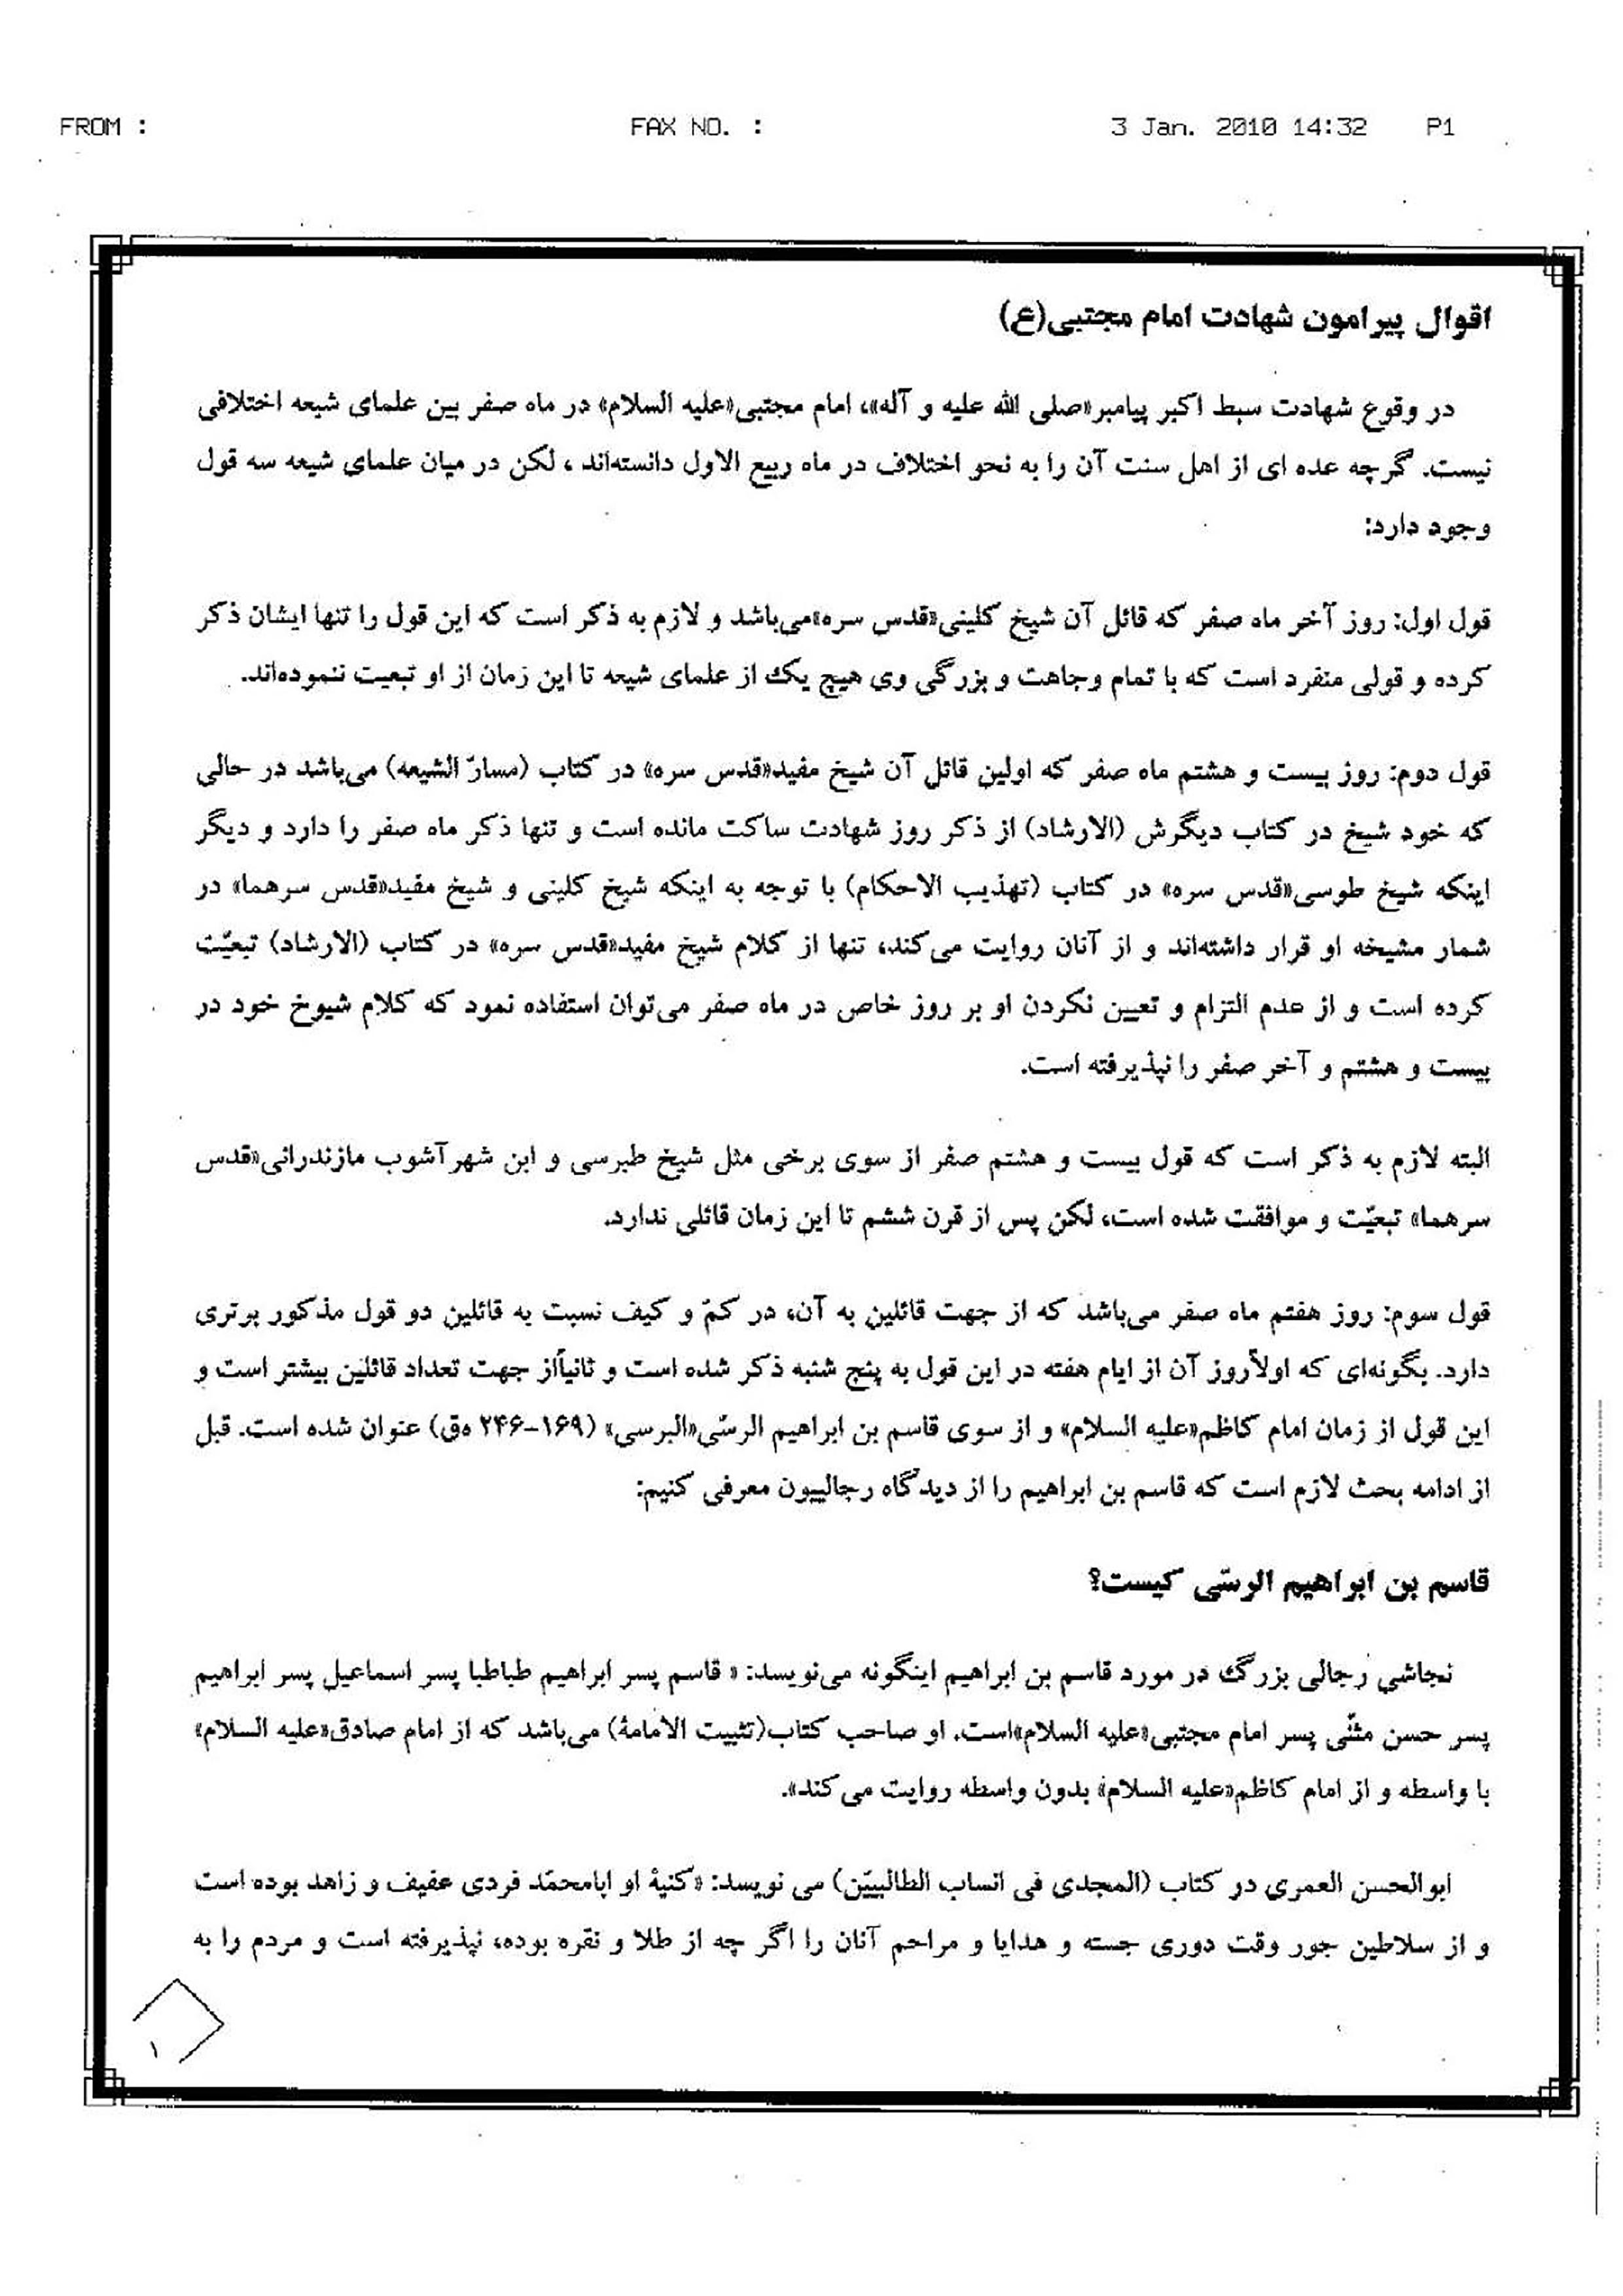 FROM :
FAX NO. :
3 Jan. 2010 14:32
P1
اقوال پیرامون شهادت امام مجتبی(ع)
در وقوع شهادت سبط اکبر پیامبر«صلی الله علیه و آله»، امام مجتبی«علیه السلام» در ماه صفر بین علمای شیعه اختلافی
نیست. گرچه عده ای از اهل سنت آن را به نحو اختلاف در ماه ربیع الاول دانسته‌اند ، لکن در میان علمای شیعه سه قول
وجود دارد:
قول اول: روز آخر ماه صفر که قائل آن شیخ کلینی«قدس سره»می‌باشد و لازم به ذکر است که این قول را تنها ایشان ذکر
کرده و قولی منفرد است که با تمام وجاهت و بزرگی وی هیچ یک از علمای شیعه تا این زمان از او تبعیت ننموده‌اند.
قول دوم: روز بیست و هشتم ماه صفر که اولین قائل آن شیخ مفید«قدس سره» در کتاب (مسارّ الشیعه) می‌باشد در حالی
که خود شیخ در کتاب دیگرش (الارشاد) از ذکر روز شهادت ساکت مانده است و تنها ذکر ماه صفر را دارد و دیگر
اینکه شیخ طوسی«قدس سره» در کتاب (تهذیب الاحکام) با توجه به اینکه شیخ کلینی و شیخ مفید«قدس سرهما» در
شمار مشیخه او قرار داشته‌اند و از آنان روایت می‌کند، تنها از کلام شیخ مفید«قدس سره» در کتاب (الارشاد) تبعیّت
کرده است و از عدم التزام و تعیین نکردن او بر روز خاص در ماه صفر می‌توان استفاده نمود که کلام شیوخ خود در
بیست و هشتم و آخر صفر را نپذیرفته است.
البته لازم به ذکر است که قول بیست و هشتم صفر از سوی برخی مثل شیخ طبرسی و ابن شهرآشوب مازندرانی«قدس
سرهما» تبعیّت و موافقت شده است، لکن پس از قرن ششم تا این زمان قائلی ندارد.
قول سوم: روز هفتم ماه صفر می‌باشد که از جهت قائلین به آن، در کمّ و کیف نسبت به قائلین دو قول مذکور برتری
دارد. بگونه‌ای که اولاًروز آن از ایام هفته در این قول به پنج شنبه ذکر شده است و ثانیاًاز جهت تعداد قائلین بیشتر است و
این قول از زمان امام کاظم«علیه السلام» و از سوی قاسم بن ابراهیم الرسّی«البرسی» (۱۶۹-۲۴۶ ه‌ق) عنوان شده است. قبل
از ادامه بحث لازم است که قاسم بن ابراهیم را از دیدگاه رجالییون معرفی کنیم:
قاسم بن ابراهیم الرسّی کیست؟
نجاشی رجالی بزرگ در مورد قاسم بن ابراهیم اینگونه می‌نویسد: « قاسم پسر ابراهیم طباطبا پسر اسماعیل پسر ابراهیم
پسر حسن مثنّی پسر امام مجتبی«علیه السلام»است. او صاحب کتاب(تثبیت الامامة) می‌باشد که از امام صادق«علیه السلام»
با واسطه و از امام کاظم«علیه السلام» بدون واسطه روایت می‌کند».
ابوالحسن العمری در کتاب (المجدی فی انساب الطالبییّن) می نویسد: «کنیهٔ او ابامحمّد فردی عفیف و زاهد بوده است
و از سلاطین جور وقت دوری جسته و هدایا و مراحم آنان را اگر چه از طلا و نقره بوده، نپذیرفته است و مردم را به
۱